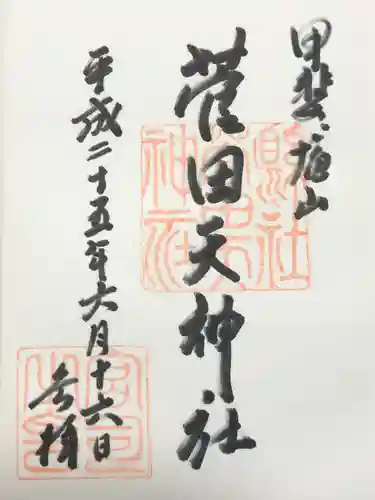 甲斐塩山
菅田天神社
平成二十五年六月十六日
参拝
縣社